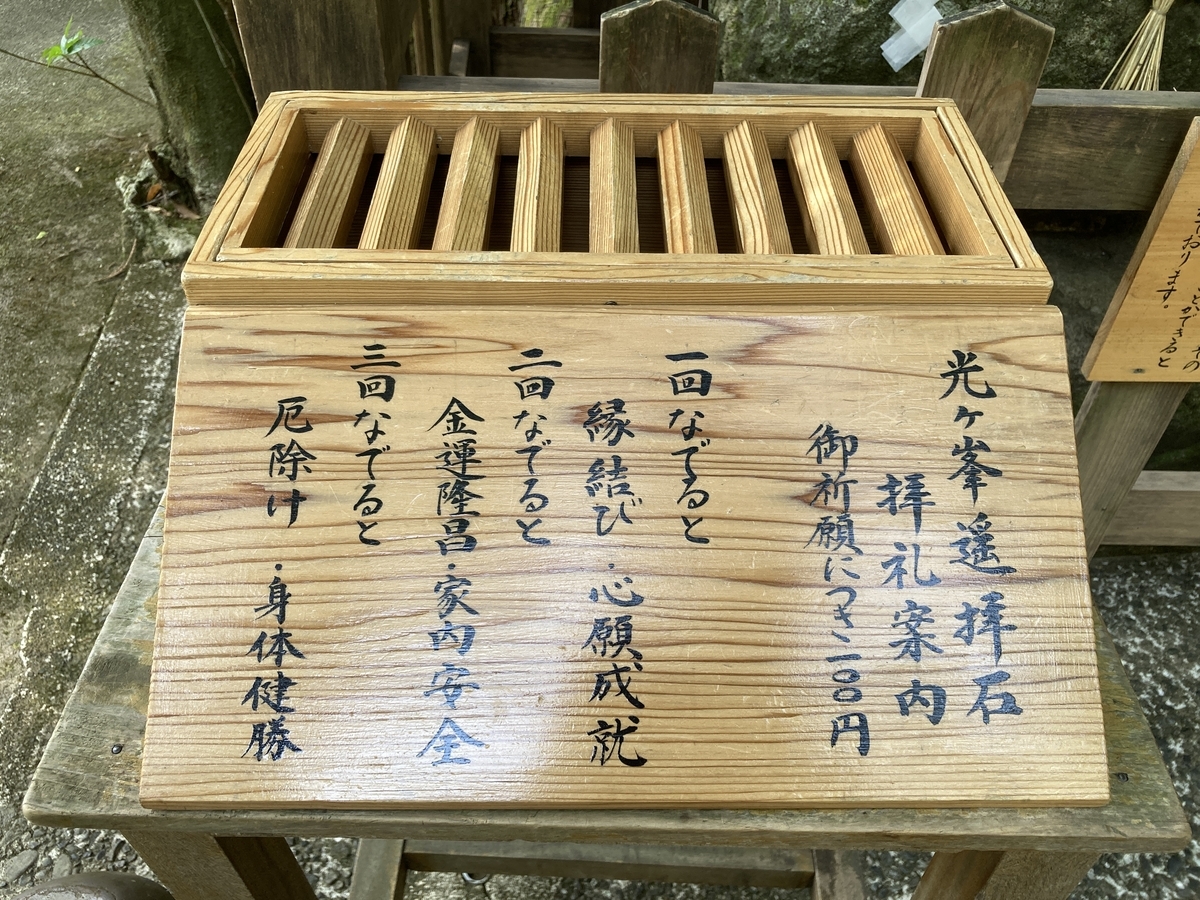 光ヶ峯遥拝石
拝礼案内
御祈願につき一〇〇円
一回なでると
縁結び・心願成就
二回なでると
金運隆昌・家内安全
三回なでると
厄除け・身体健勝
その
とができると
ております。